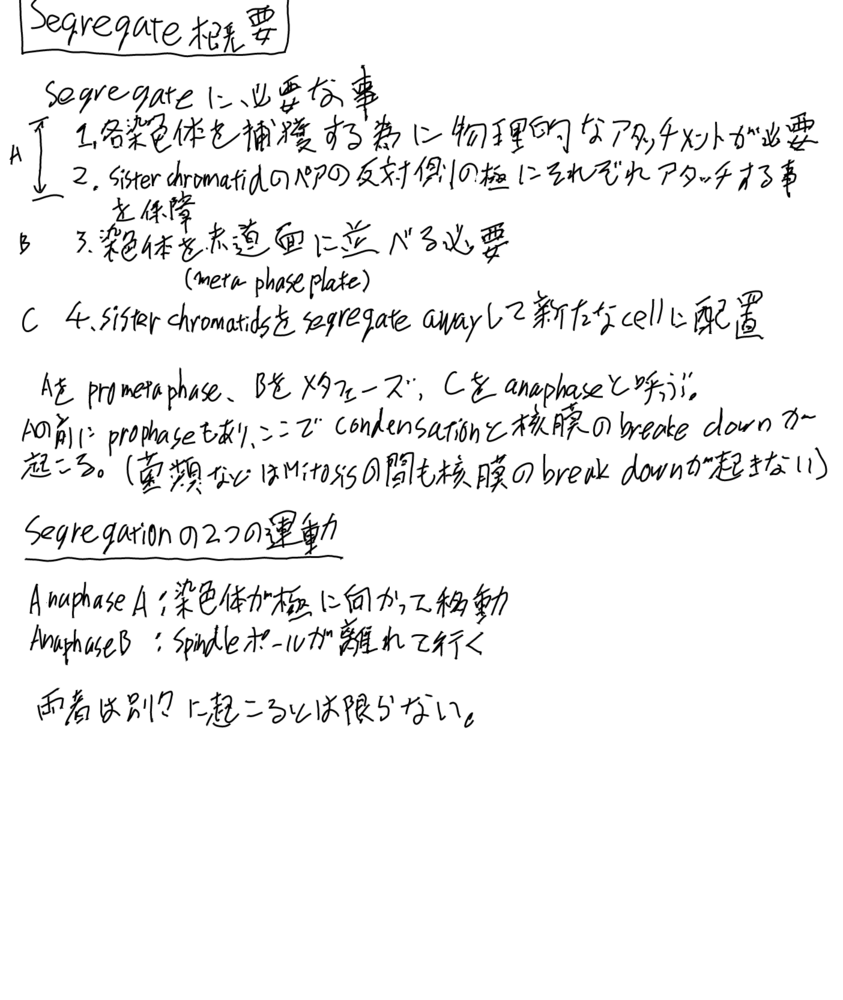 Segregate 概要
Segregateに必要な事
A 1. 各染色体を捕獲する為に物理的なアタッチメントが必要
2. sister chromatidのペアの反対側の極にそれぞれアタッチする事
を保障
B 3. 染色体を赤道面に並べる必要
(meta phase plate)
C 4. sister chromatidsをsegregate awayして新たなcellに配置
Aをprometaphase、Bをメタフェーズ、Cをanaphaseと呼ぶ。
Aの前にprophaseもあり、ここでcondensationと核膜のbreake downが
起こる。(菌類などはMitosisの間も核膜のbreak downが起きない)
Segregationの2つの運動
Anaphase A : 染色体が極に向かって移動
Anaphase B : Spindleポールが離れて行く
両者は別々に起こるとは限らない。